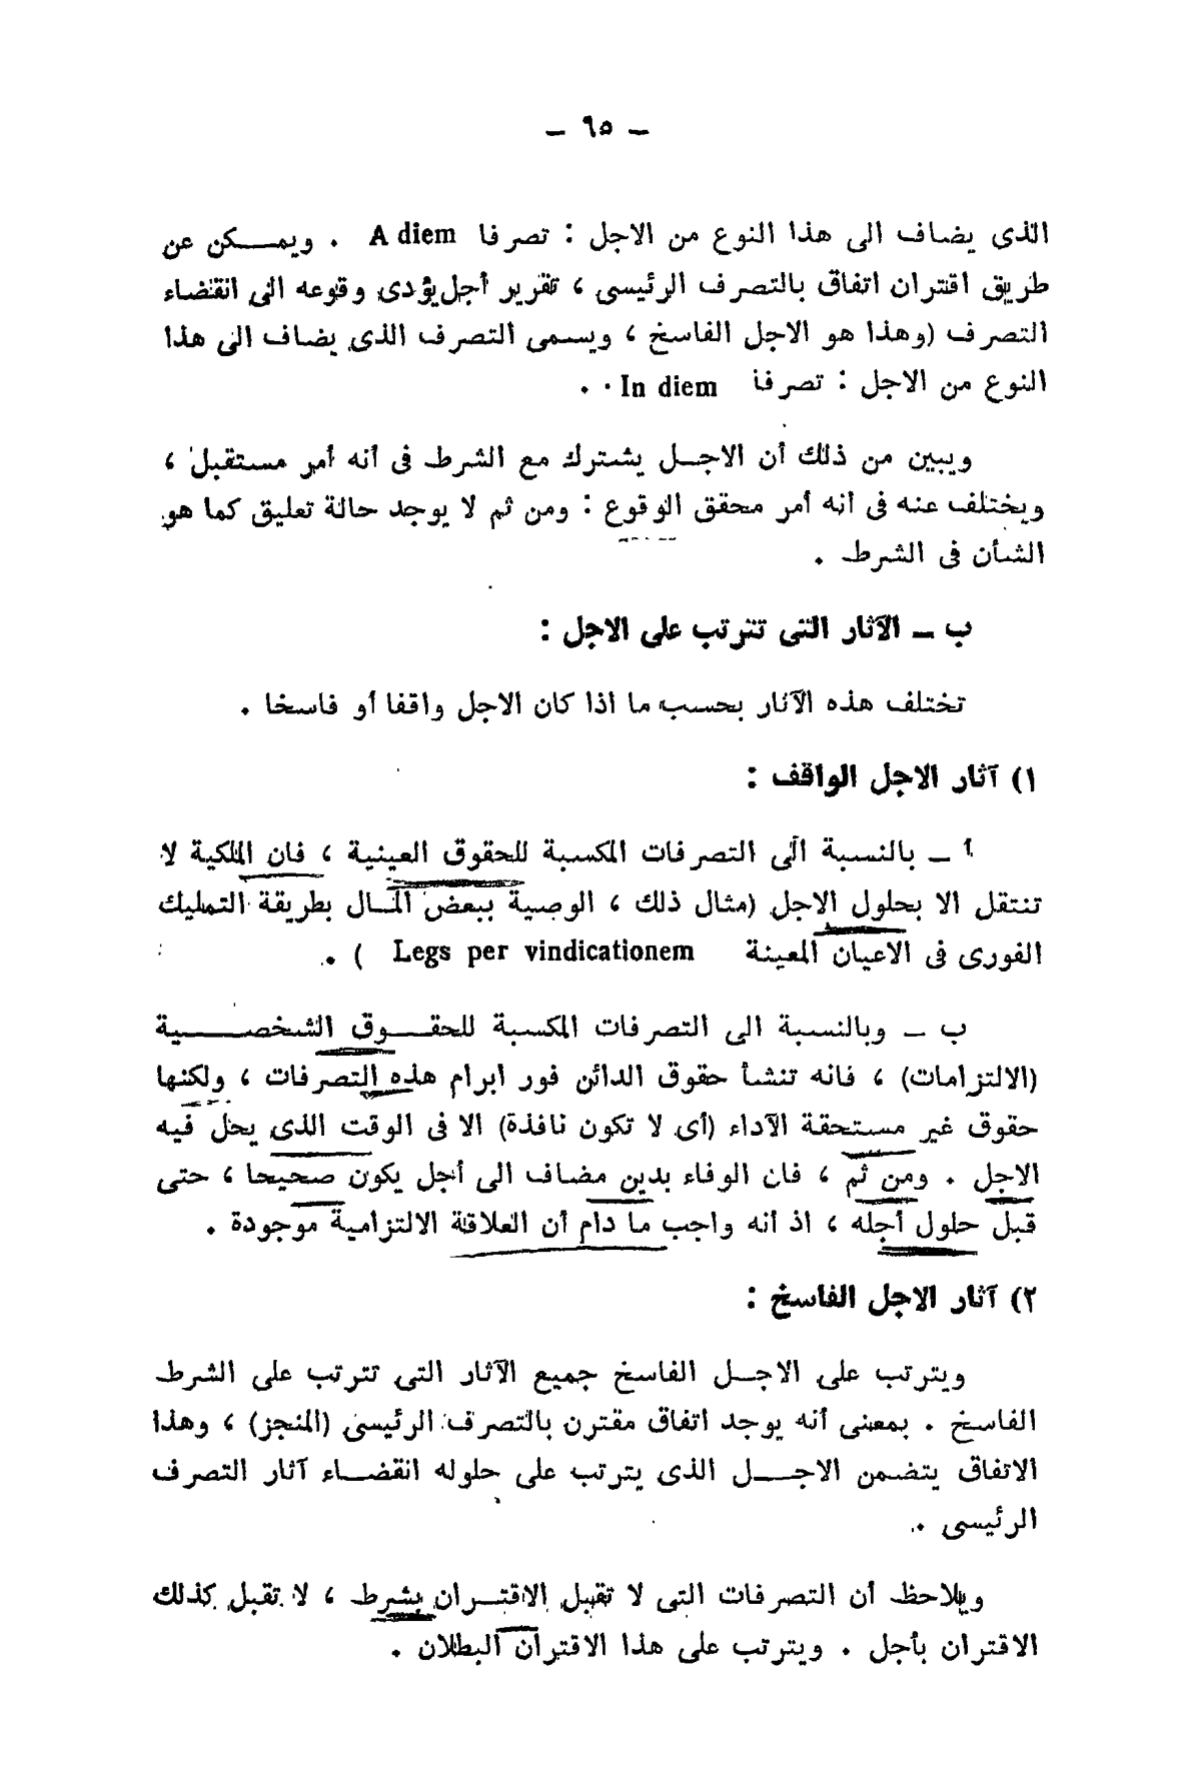 – ٦٥ –
الذى يضاف الى هذا النوع من الاجل : تصرفا A diem . ويمـــكن عن
طريق اقتران اتفاق بالتصرف الرئيسى ، تقرير أجل يؤدى وقوعه الى انقضاء
التصرف (وهذا هو الاجل الفاسخ ، ويسمى التصرف الذى يضاف الى هذا
النوع من الاجل : تصرفا In diem .
ويبين من ذلك أن الاجــل يشترك مع الشرط فى أنه أمر مستقبل ،
ويختلف عنه فى انه أمر محقق الوقوع : ومن ثم لا يوجد حالة تعليق كما هو
الشأن فى الشرط .
ب – الآثار التى تترتب على الاجل :
تختلف هذه الآثار بحسب ما اذا كان الاجل واقفا أو فاسخا .
١) آثار الاجل الواقف :
أ – بالنسبة الى التصرفات المكسبة للحقوق العينية ، فان الملكية لا
تنتقل الا بحلول الاجل (مثال ذلك ، الوصية ببعض المــال بطريقة التمليك
الفورى فى الاعيان المعينة Legs per vindicationem ) .
ب – وبالنسبة الى التصرفات المكسبة للحقــوق الشخصـــــية
(الالتزامات) ، فانه تنشأ حقوق الدائن فور ابرام هذه التصرفات ، ولكنها
حقوق غير مستحقة الآداء (أى لا تكون نافذة) الا فى الوقت الذى يحل فيه
الاجل . ومن ثم ، فان الوفاء بدين مضاف الى أجل يكون صحيحا ، حتى
قبل حلول أجله ، اذ أنه واجب ما دام أن العلاقة الالتزامية موجودة .
٢) آثار الاجل الفاسخ :
ويترتب على الاجــل الفاسخ جميع الآثار التى تترتب على الشرط
الفاسخ . بمعنى أنه يوجد اتفاق مقترن بالتصرف الرئيسى (المنجز) ، وهذا
الاتفاق يتضمن الاجـــل الذى يترتب على حلوله انقضـــاء آثار التصرف
الرئيسى .
ويلاحظ أن التصرفات التى لا تقبل الاقتــران بشرط ، لا تقبل كذلك
الاقتران بأجل . ويترتب على هذا الاقتران البطلان .